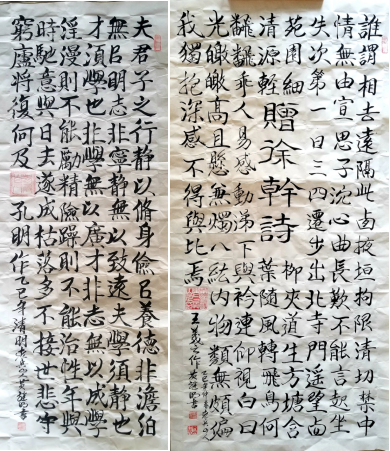 誰謂相去遠隔此西掖垣拘限清切禁中
情無由宣思子沈心曲長歎不能言起坐
失次第一日三四遷步出北寺門遥望西
苑園細柳夾道生方塘含
清源輕葉隨風轉飛鳥何
贈徐幹詩
翩翻乖人易感動涕下與衿連仰視白日
光皦皦高且懸兼燭八紘内物類無頗偏
我獨抱深感不得與比焉
夫君子之行靜以脩身儉㠯養德非澹泊
無㠯明志非寧靜無以致遠夫學須靜也
才須學也非學無以廣才非志無以成學
淫漫則不能勵精險躁則不能治性年與
時馳意與日去遂成枯落多不接世悲守
窮廬將復何及 孔明作乙巳年清明